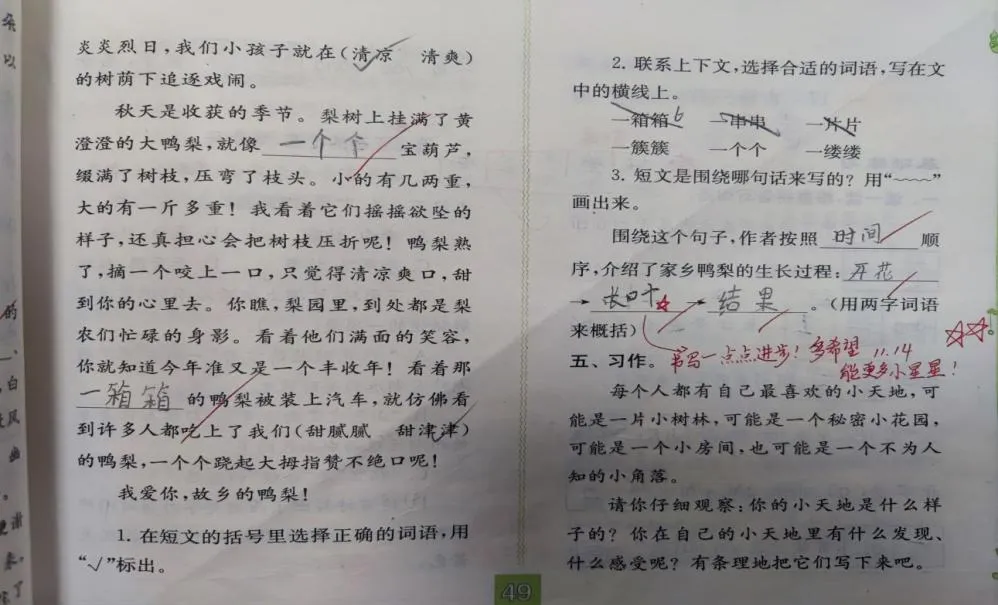 炎炎烈日,我们小孩子就在(清凉 清爽)
的树荫下追逐戏闹。
秋天是收获的季节。梨树上挂满了黄
澄澄的大鸭梨,就像 一个个 宝葫芦,
缀满了树枝,压弯了枝头。小的有几两重,
大的有一斤多重!我看着它们摇摇欲坠的
样子,还真担心会把树枝压折呢!鸭梨熟
了,摘一个咬上一口,只觉得清凉爽口,甜
到你的心里去。你瞧,梨园里,到处都是梨
农们忙碌的身影。看着他们满面的笑容,
你就知道今年准又是一个丰收年!看着那
一箱箱 的鸭梨被装上汽车,就仿佛看
到许多人都吃上了我们(甜腻腻 甜津津)
的鸭梨,一个个跷起大拇指赞不绝口呢!
我爱你,故乡的鸭梨!
1. 在短文的括号里选择正确的词语,用
“√”标出。
49
2. 联系上下文,选择合适的词语,写在文
中的横线上。
一箱箱 一串串 一片片
一簇簇 一个个 一缕缕
3. 短文是围绕哪句话来写的?用“﹏﹏”
画出来。
围绕这个句子,作者按照 时间 顺
序,介绍了家乡鸭梨的生长过程: 开花
→ 长叶 → 结果 。(用两字词语
来概括)
书写一点点进步!多希望
能更多小星星!
11.14
五、习作。
每个人都有自己最喜欢的小天地,可
能是一片小树林,可能是一个秘密小花园,
可能是一个小房间,也可能是一个不为人
知的小角落。
请你仔细观察:你的小天地是什么样
子的?你在自己的小天地里有什么发现、
什么感受呢?有条理地把它们写下来吧。